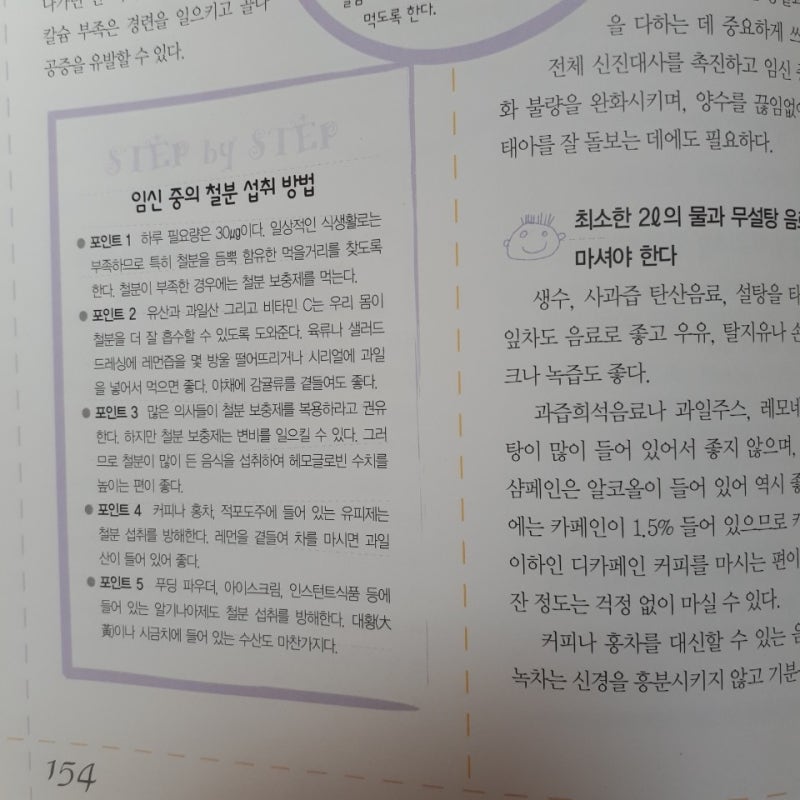 칼슘 부족은 경련을 일으키고 골다
공증을 유발할 수 있다.
먹도록 한다.
STEP by STEP
임신 중의 철분 섭취 방법
● 포인트 1 하루 필요량은 30㎍이다. 일상적인 식생활로는
부족하므로 특히 철분을 듬뿍 함유한 먹을거리를 찾도록
한다. 철분이 부족한 경우에는 철분 보충제를 먹는다.
● 포인트 2 유산과 과일산 그리고 비타민 C는 우리 몸이
철분을 더 잘 흡수할 수 있도록 도와준다. 육류나 샐러드
드레싱에 레몬즙을 몇 방울 떨어뜨리거나 시리얼에 과일
을 넣어서 먹으면 좋다. 야채에 감귤류를 곁들여도 좋다.
● 포인트 3 많은 의사들이 철분 보충제를 복용하라고 권유
한다. 하지만 철분 보충제는 변비를 일으킬 수 있다. 그러
므로 철분이 많이 든 음식을 섭취하여 헤모글로빈 수치를
높이는 편이 좋다.
● 포인트 4 커피나 홍차, 적포도주에 들어 있는 유피제는
철분 섭취를 방해한다. 레먼을 곁들여 차를 마시면 과일
산이 들어 있어 좋다.
● 포인트 5 푸딩 파우더, 아이스크림, 인스턴트식품 등에
들어 있는 알기나아제도 철분 섭취를 방해한다. 대황(大
黃)이나 시금치에 들어 있는 수산도 마찬가지다.
154
을 다하는 데 중요하게 쓰
전체 신진대사를 촉진하고 임신
화 불량을 완화시키며, 양수를 끊임없이
태아를 잘 돌보는 데에도 필요하다.
최소한 2ℓ의 물과 무설탕 음료
마셔야 한다
생수, 사과즙 탄산음료, 설탕을
잎차도 음료로 좋고 우유, 탈지유나
크나 녹즙도 좋다.
과즙희석음료나 과일주스, 레모네
탕이 많이 들어 있어서 좋지 않으며,
샴페인은 알코올이 들어 있어 역시
에는 카페인이 1.5% 들어 있으므로
이하인 디카페인 커피를 마시는 편이
잔 정도는 걱정 없이 마실 수 있다.
커피나 홍차를 대신할 수 있는
녹차는 신경을 흥분시키지 않고 기분